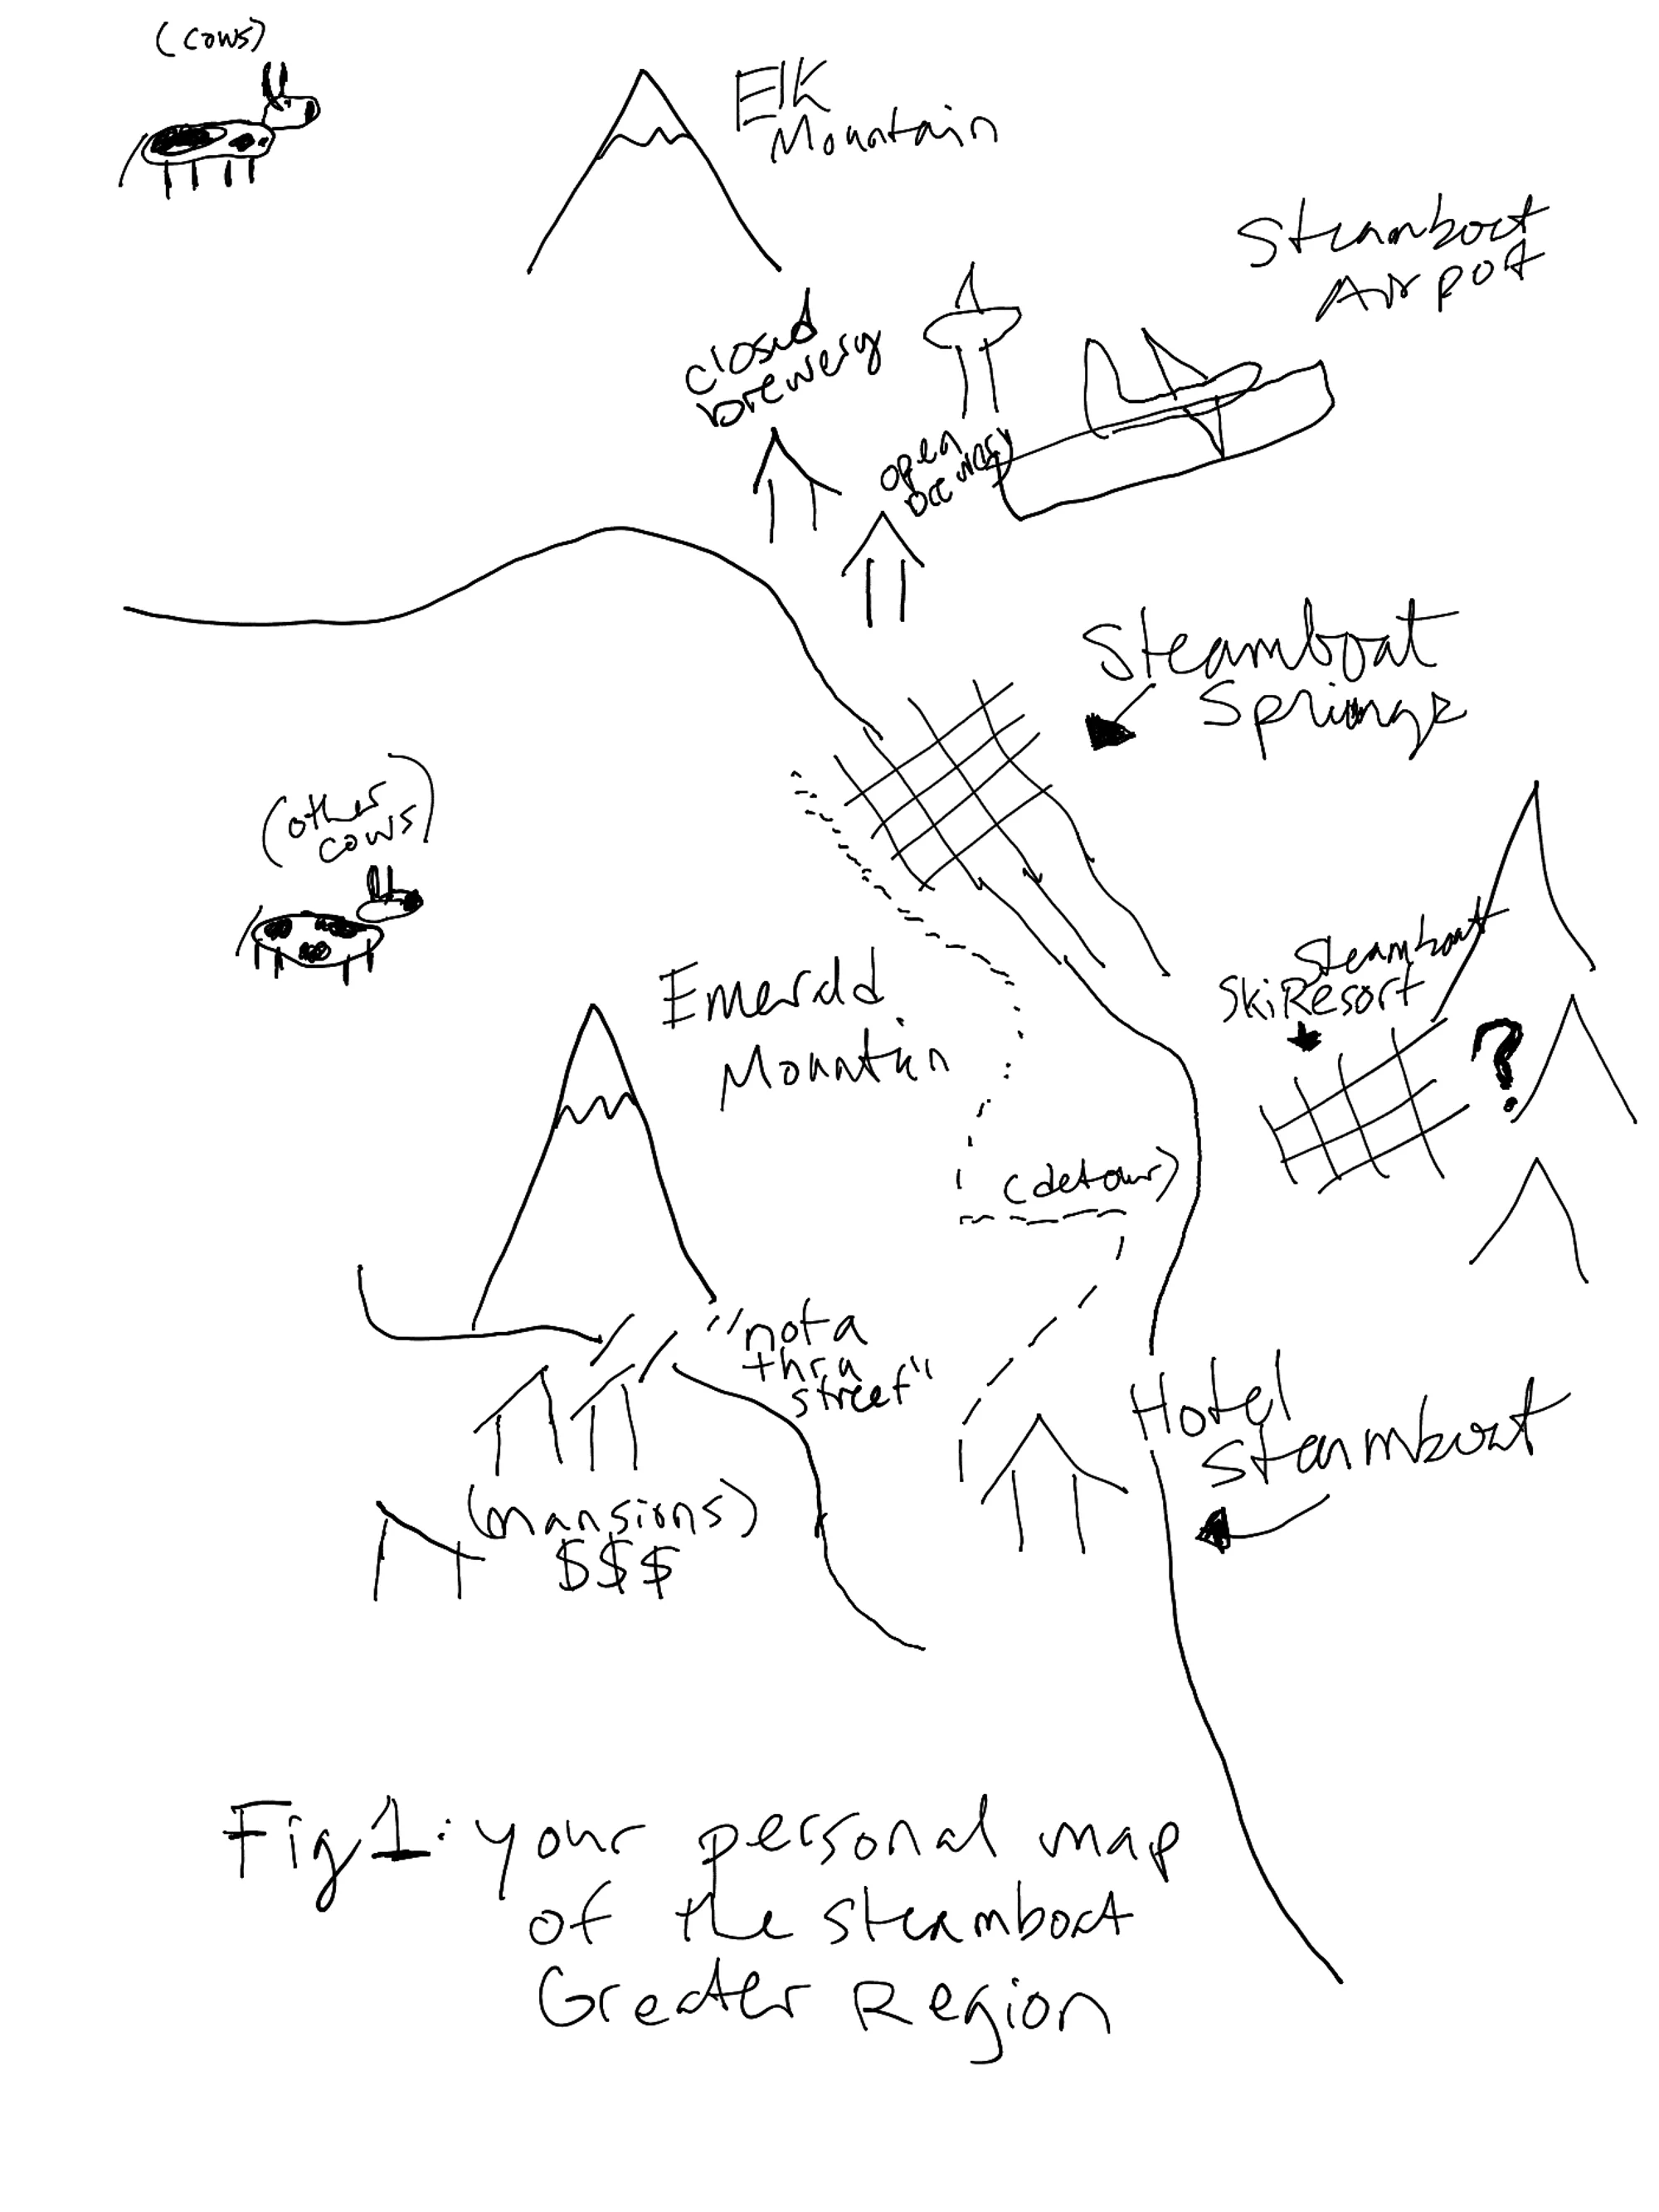 (cows)
Elk
Mountain
Steamboat
Airport
closed
brewery
open
brewery
Steamboat
Springs
(other
cows)
Steamboat
Ski Resort
?
Emerald
Mountain
(detour)
"not a
thru
street"
Hotel
Steamboat
(mansions)
$$$
Fig 1: your personal map
of the steamboat
Greater Region